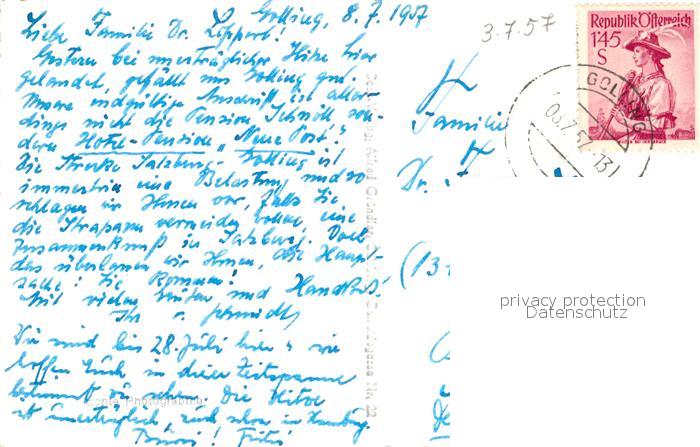 Golling, 8.7.1957
Liebe Familie Dr. Lippert!
Gestern bei unerträglicher Hitze hier
gelandet, gefällt uns Golling gut.
Unsere endgültige Anschrift ist aller-
dings nicht die Pension Schnöll son-
dern Hotel-Pension „Neue Post".
Die Strecke Salzburg - Golling ist
immerhin eine Belastung und so
schlagen wir Ihnen vor, falls Sie
die Strapazen vermeiden wollen, eine
Zusammenkunft in Salzburg. Doch
das überlassen wir Ihnen, die Haupt-
sache: Sie kommen!
Mit vielen Grüßen und Handkuß
Ihr
Wir sind bis 28. Juli hier u. wir
hoffen Euch in dieser Zeitspanne
bestimmt zu sehen. Die Hitze
ist unerträglich, auch schon in
3.7.57
Republik Österreich
1'45
S
GOLLING
08.7.57-13
Familie
Dr.
(13
privacy protection
Datenschutz